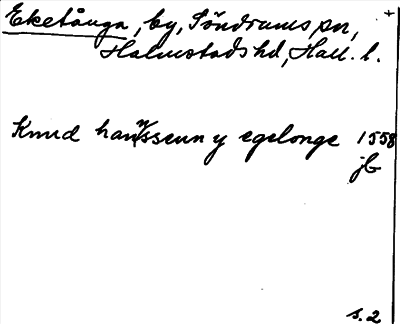 Eketånga, by, Söndrums sn, +
Halmstads hd, Hall. l.
Knud hannsseun y egelonge 1558
jb
s. 2